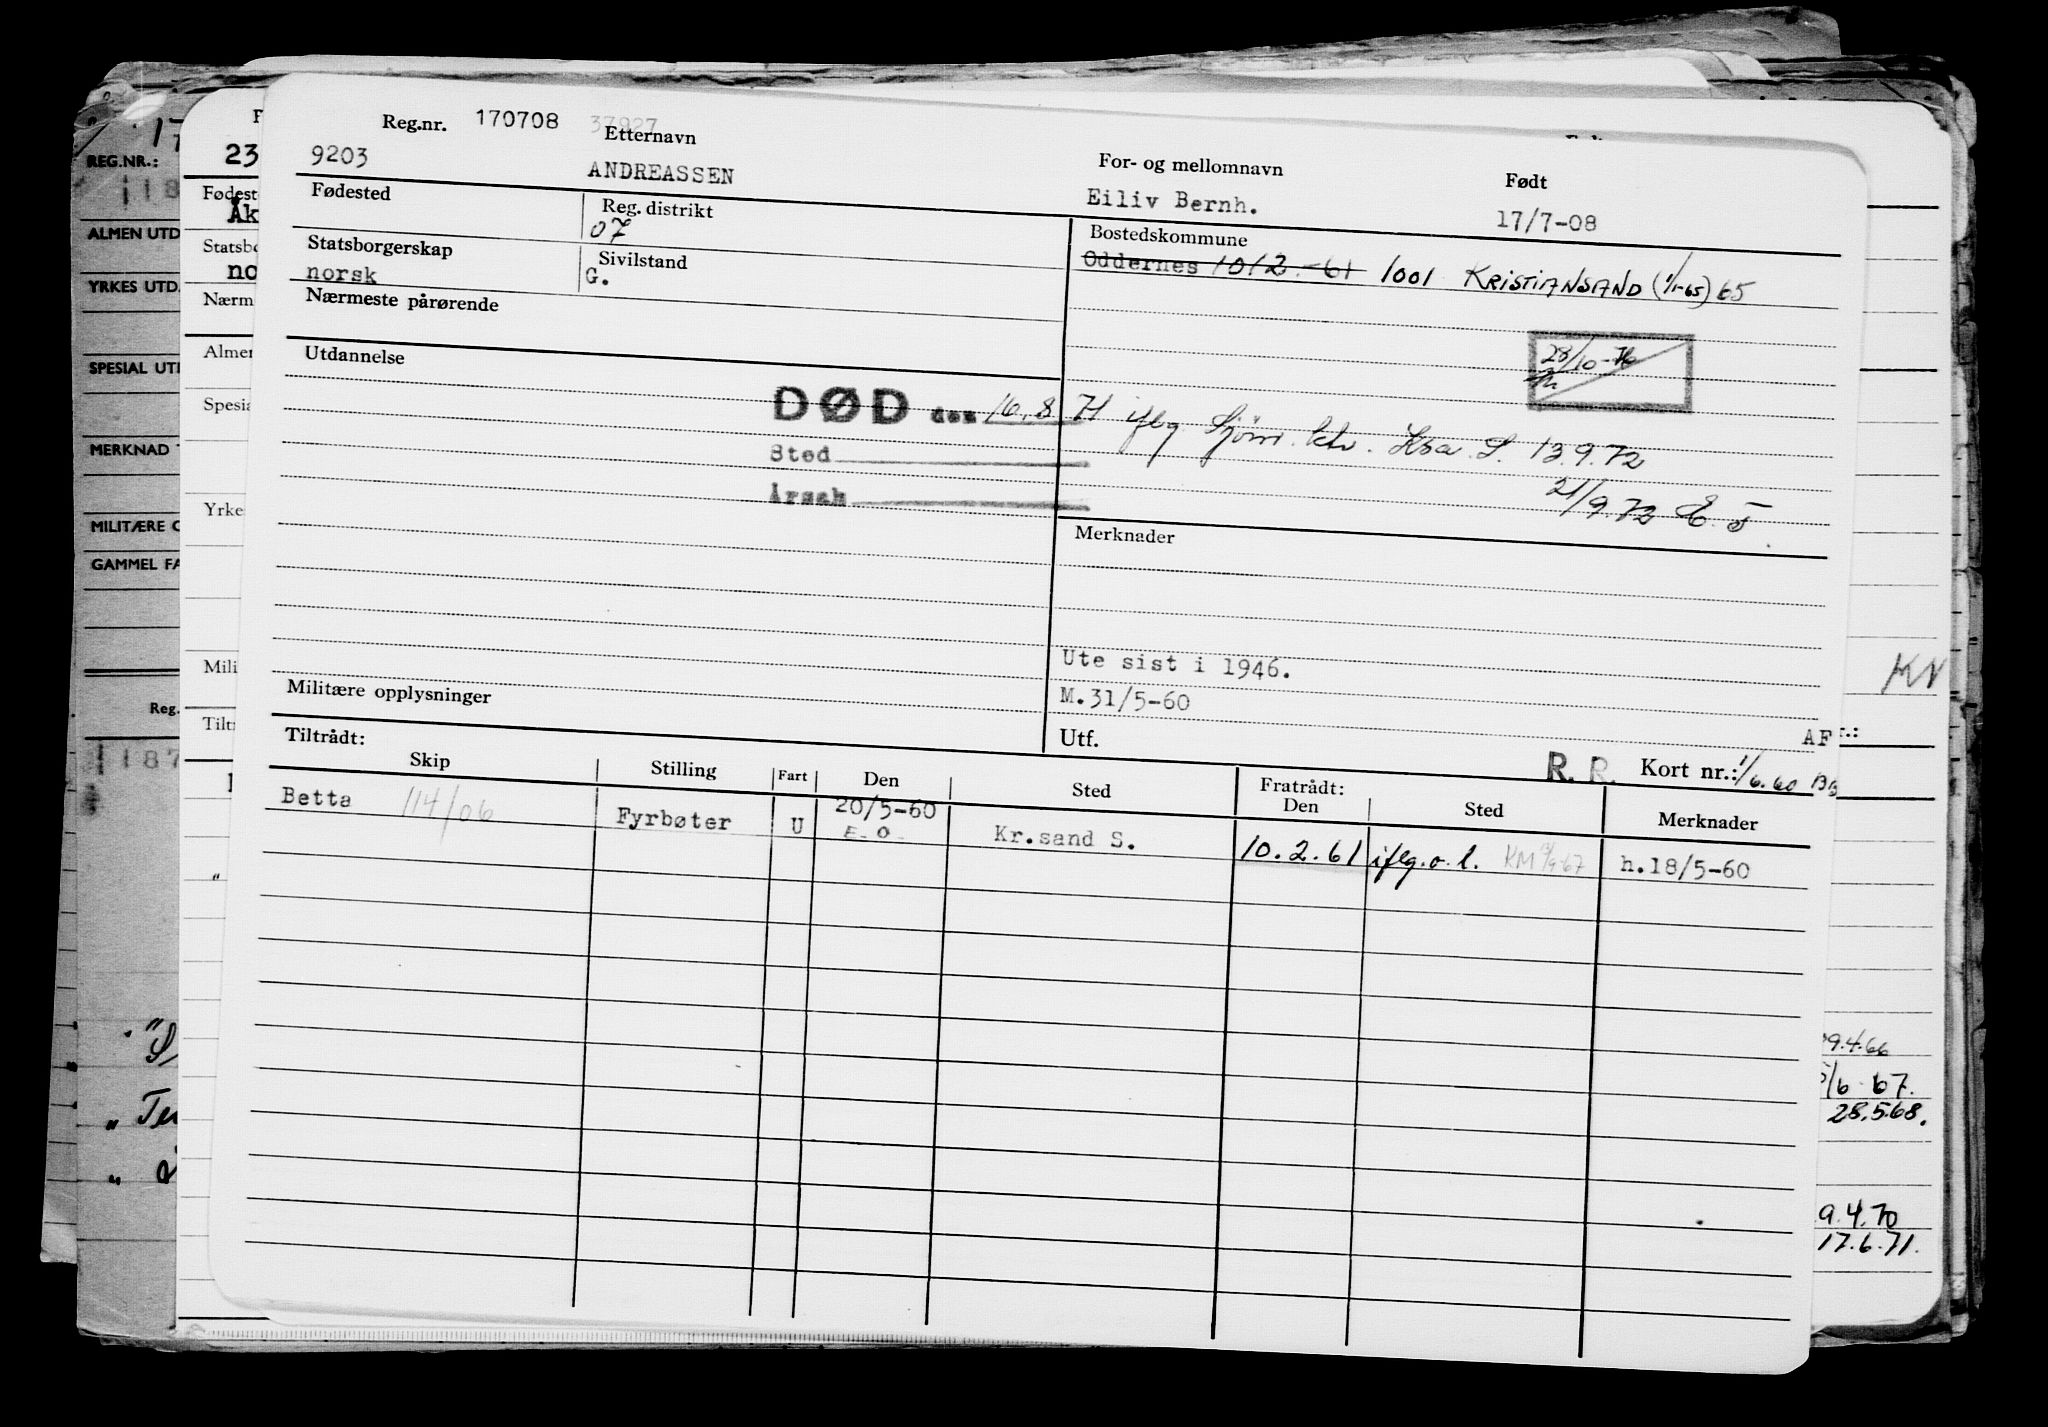 Reg.nr. 170708 37927
9203
Etternavn
ANDREASSEN
For- og mellomnavn
Eiliv Bernh.
Født
17/7-08
Fødested
Reg. distrikt
07
Bostedskommune
Oddernes 1012.-61 1001 KRISTIANSAND (1/1-65) 65
Statsborgerskap
norsk
Sivilstand
G.
Nærmeste pårørende
28/10-76
Utdannelse
DØD den 16.8 71 iflg Sjøm. ktr. Ksa. S. 13.9.72
Sted
Årsak
21/9.72
Merknader
Ute sist i 1946.
M.31/5-60
Militære opplysninger
Utf.
AF
R. R. Kort nr.: 1/6.60 BB
Tiltrådt:
Skip Stilling Fart Den Sted Fratrådt: Den Sted Merknader
Betta 114/06 Fyrbøter U 20/5-60 E.O. Kr.sand S. 10.2.61 iflg.o.l. h.18/5-60
REG.NR.:
ALMEN UTD
YRKES UTD.
SPESIAL UTD
MERKNAD
MILITÆRE
GAMMEL FA
Reg.
187
23
Fødest
Åk
Statsbo
no
Nærm
Almen
Spesia
Yrke
Mili
Tilt
KN
9.4.66
/6-67.
28.5.68.
9.4.70
17.6.71.